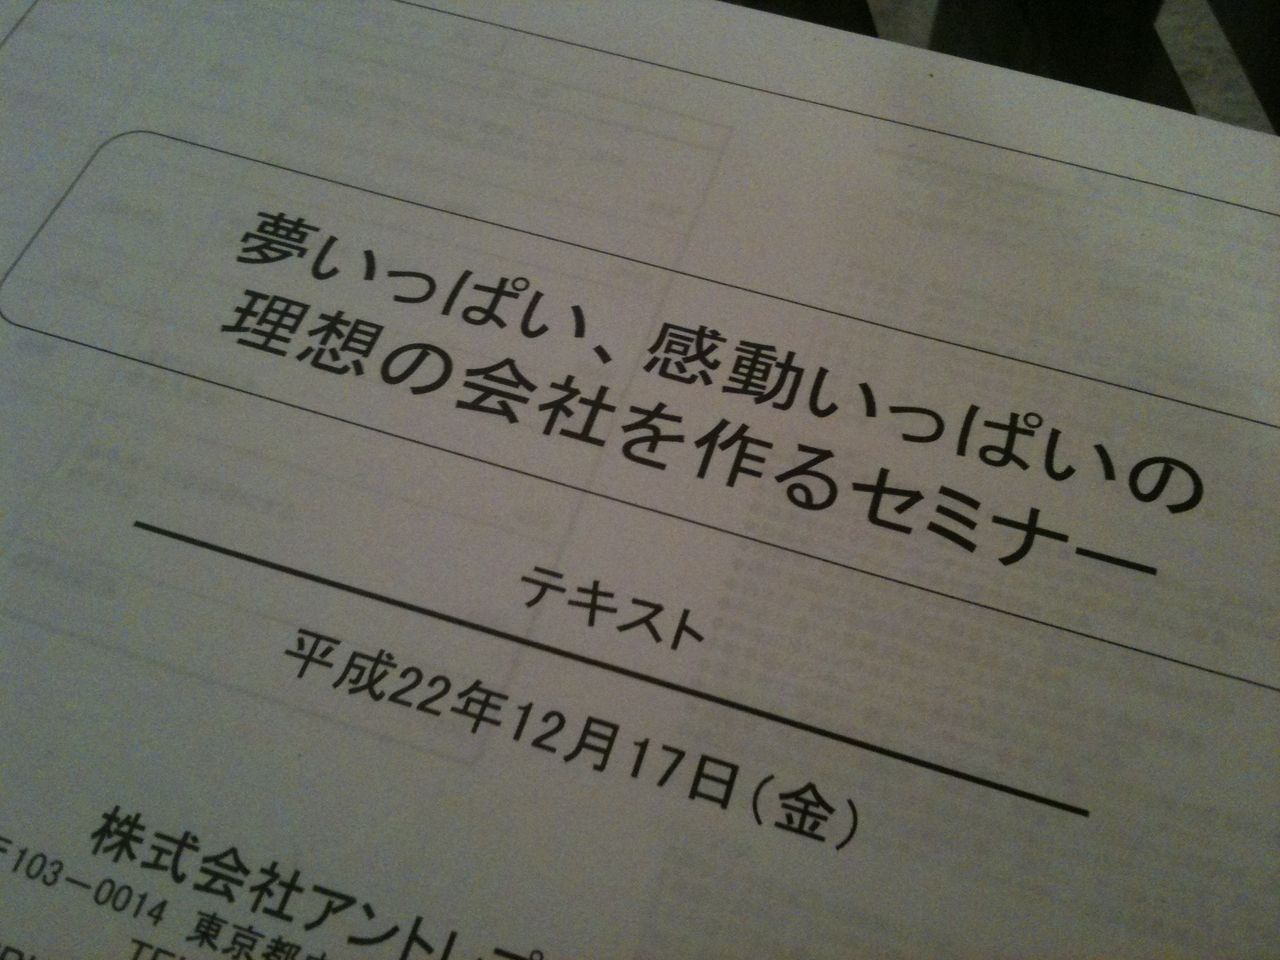 夢いっぱい、感動いっぱいの
理想の会社を作るセミナー
テキスト
平成22年12月17日（金）
株式会社アントレプ
〒103－0014 東京都
TEL